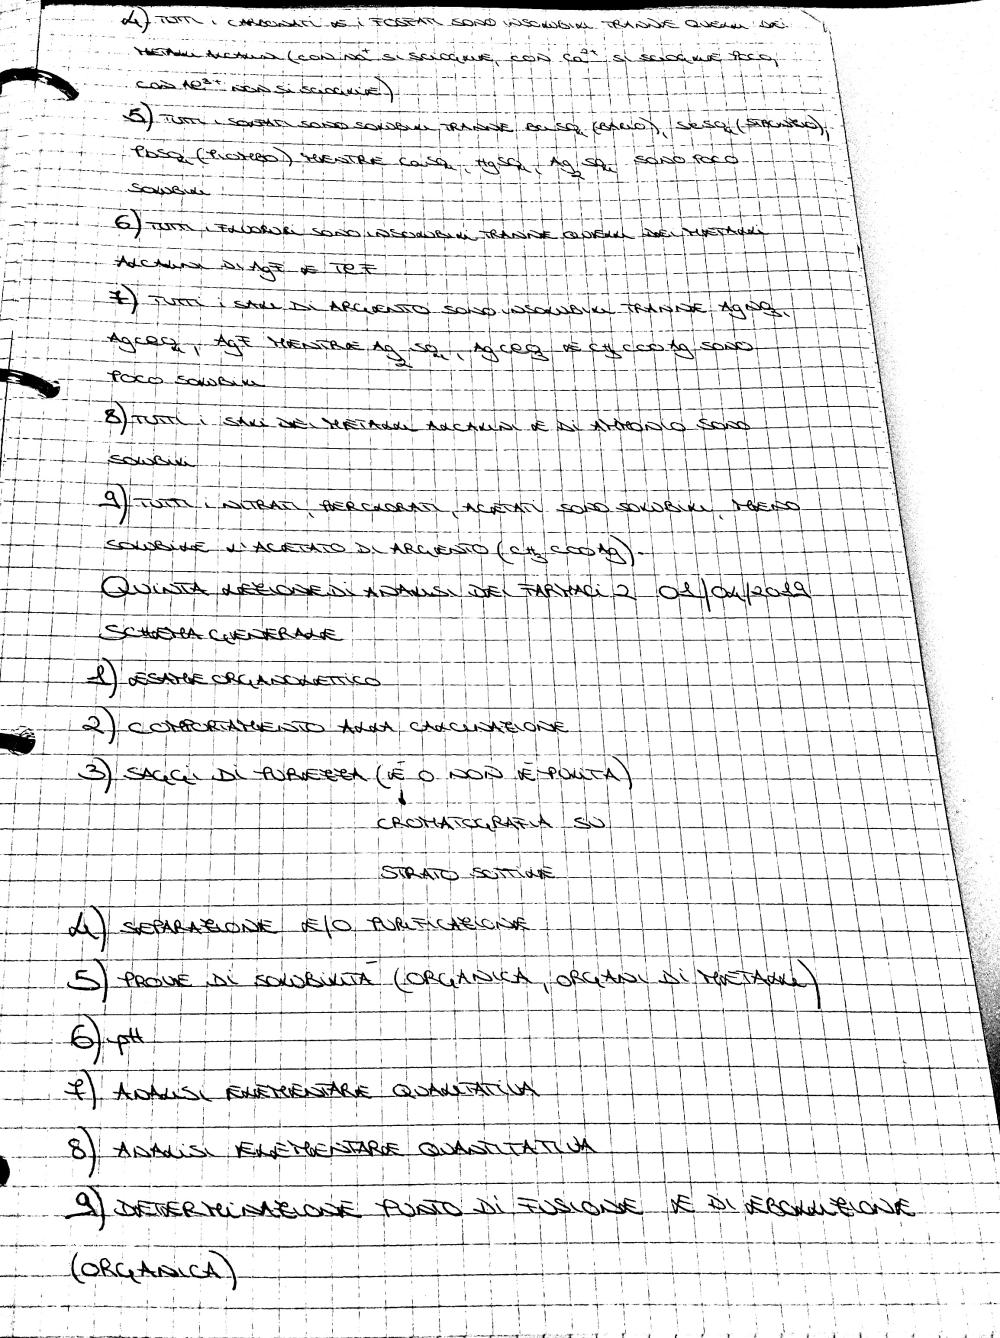 4) TUTTI i CARBONATI E i FOSFATI SONO INSOLUBILI TRANNE QUELLI DEI
METALLI ALCALINI (CON Na⁺ SI SCIOGLIE, CON Ca²⁺ SI SCIOGLIE POCO,
CON Al³⁺ NON SI SCIOGLIE)
5) TUTTI i SOLFATI SONO SOLUBILI TRANNE BaSO₄ (BARIO), SrSO₄ (STRONZIO),
PbSO₄ (PIOMBO) MENTRE CaSO₄, HgSO₄, Ag₂SO₄ SONO POCO
SOLUBILI
6) TUTTI i FLUORURI SONO INSOLUBILI TRANNE QUELLI DEI METALLI
ALCALINI DI AgF E TlF
7) TUTTI i SALI DI ARGENTO SONO INSOLUBILI TRANNE AgNO₃,
AgClO₄, AgF MENTRE Ag₂SO₄, AgClO₃ E CH₃COOAg SONO
POCO SOLUBILI
8) TUTTI i SALI DEI METALLI ALCALINI E DI AMMONIO SONO
SOLUBILI
9) TUTTI i NITRATI, PERCLORATI, ACETATI SONO SOLUBILI, MENO
SOLUBILE L'ACETATO DI ARGENTO (CH₃COOAg).
QUINTA LEZIONE DI ANALISI DEI FARMACI 2 01/04/2019
SCHEMA GENERALE
1) ESAME ORGANOLETTICO
2) COMPORTAMENTO ALLA CALCINAZIONE
3) SAGGI DI PUREZZA (È O NON È PULITA)
↓
CROMATOGRAFIA SU
STRATO SOTTILE
4) SEPARAZIONE E/O PURIFICAZIONE
5) PROVE DI SOLUBILITÀ (ORGANICA, ORGANI DI METALLI)
6) pH
7) ANALISI ELEMENTARE QUALITATIVA
8) ANALISI ELEMENTARE QUANTITATIVA
9) DETERMINAZIONE PUNTO DI FUSIONE E DI EBOLLIZIONE
(ORGANICA)